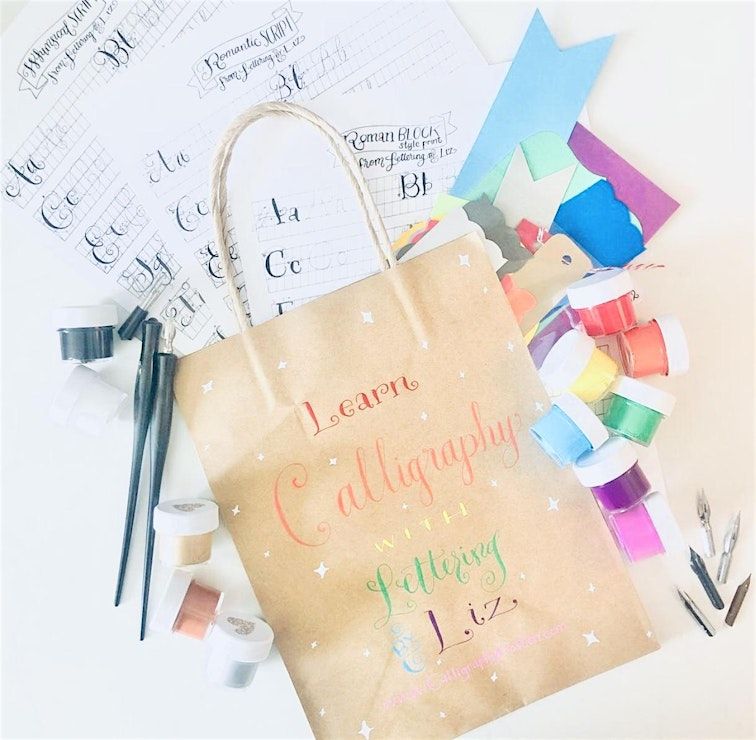 Whimsical SCRIPT
from Lettering by Liz
Bb
Aa
Cc
Romantic SCRIPT
from Lettering by Liz
Bb
Aa
Cc
Roman BLOCK
style print
from Lettering by Liz
Bb
Cc
Learn
Calligraphy
WITH
Lettering
BY
Liz